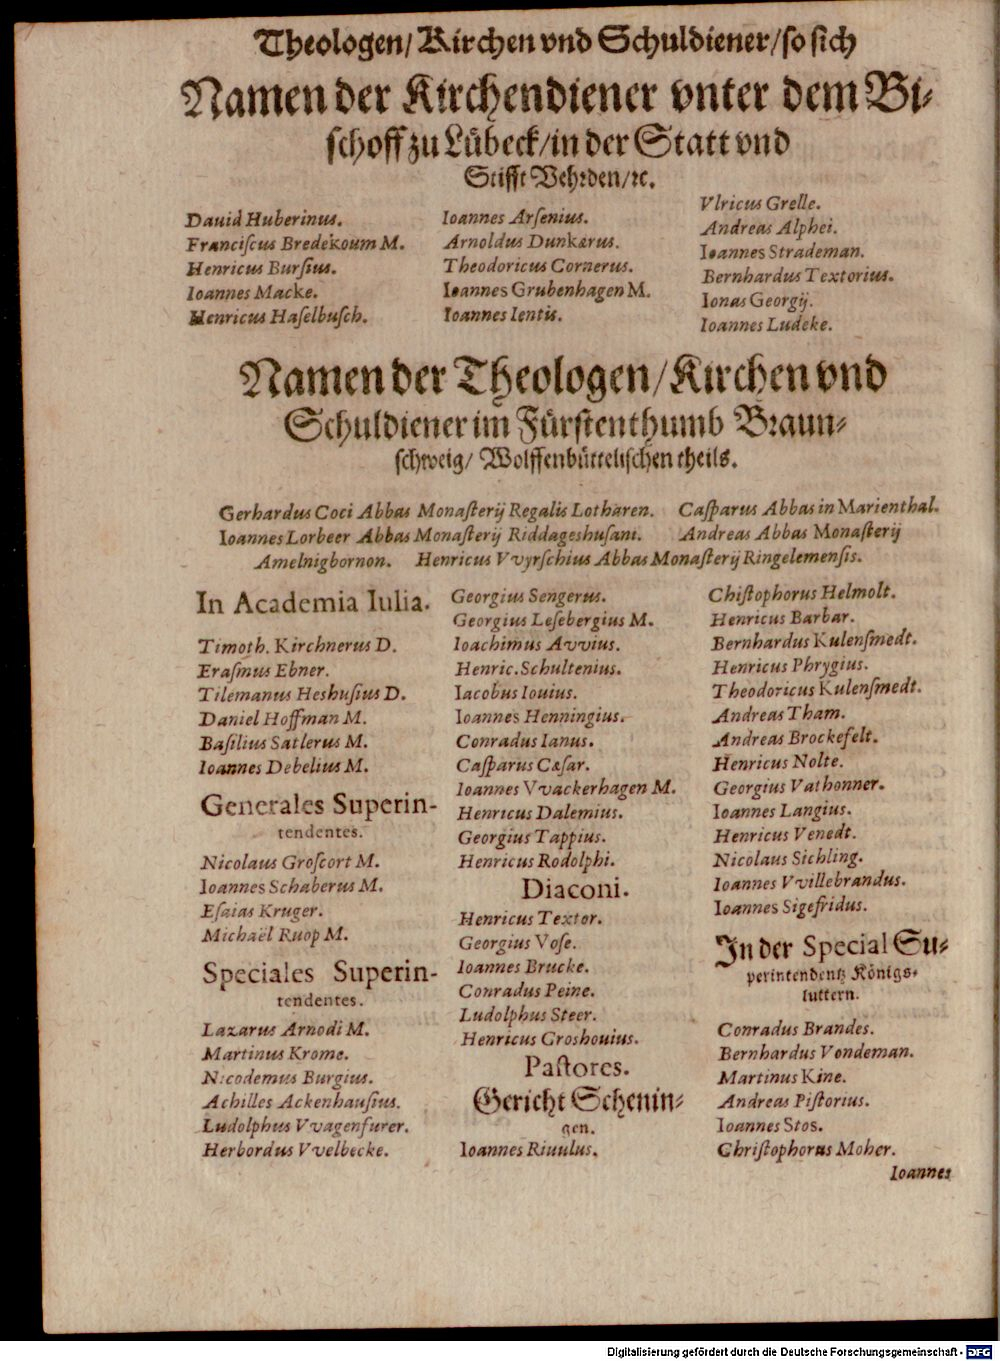 Theologen/ Kirchen vnd Schuldiener/ so sich
Namen der Kirchendiener vnter dem Bi⸗
schoff zu Lübeck/ in der Statt vnd
Stifft Vehrden/ ꝛc.
Dauid Huberinus.
Franciſcus Bredekoum M.
Henricus Burſius.
Ioannes Macke.
Henricus Haſelbuſch.
Ioannes Arſenius.
Arnoldus Dunkærus.
Theodoricus Cornerus.
Ioannes Grubenhagen M.
Ioannes Ientis.
Vlricus Grelle.
Andreas Alphei.
Ioannes Strademan.
Bernhardus Textorius.
Ionas Georgij.
Ioannes Ludeke.
Namen der Theologen/ Kirchen vnd
Schuldiener im Fürstenthumb Braun⸗
schweig/ Wolffenbüttelischen theils.
Gerhardus Coci Abbas Monaſterij Regalis Lotharen. Caſparus Abbas in Marienthal.
Ioannes Lorbeer Abbas Monaſterij Riddageshuſani. Andreas Abbas Monaſterij
Amelnigbornon. Henricus Vvyrſchius Abbas Monaſterij Ringelemenſis.
In Academia Iulia.
Timoth. Kirchnerus D.
Eraſmus Ebner.
Tilemanus Heshuſius D.
Daniel Hoffman M.
Baſilius Satlerus M.
Ioannes Debelius M.
Generales Superin-
tendentes.
Nicolaus Groſcort M.
Ioannes Schaberus M.
Eſaias Kruger.
Michaël Ruop M.
Speciales Superin-
tendentes.
Lazarus Arnodi M.
Martinus Krome.
Nicodemus Burgius.
Achilles Ackenhauſius.
Ludolphus Vvagenfurer.
Herbordus Vvelbecke.
Georgius Sengerus.
Georgius Leſebergius M.
Ioachimus Avvius.
Henric. Schultenius.
Iacobus Iouius.
Ioannes Henningius.
Conradus Ianus.
Caſparus Cæſar.
Ioannes Vvackerhagen M.
Henricus Dalemius.
Georgius Tappius.
Henricus Rodolphi.
Diaconi.
Henricus Textor.
Georgius Voſe.
Ioannes Brucke.
Conradus Peine.
Ludolphus Steer.
Henricus Groshouius.
Paſtores.
Gericht Schenin⸗
gen.
Ioannes Riuulus.
Chiſtophorus Helmolt.
Henricus Barbar.
Bernhardus Kulenſmedt.
Henricus Phrygius.
Theodoricus Kulenſmedt.
Andreas Tham.
Andreas Brockefelt.
Henricus Nolte.
Georgius Vathonner.
Ioannes Langius.
Henricus Venedt.
Nicolaus Sichling.
Ioannes Vvillebrandus.
Ioannes Sigefridus.
In der Special Su⸗
perintendentz Königs⸗
luttern.
Conradus Brandes.
Bernhardus Vondeman.
Martinus Kine.
Andreas Piſtorius.
Ioannes Stos.
Chriſtophorus Moher.
Ioannes
Digitalisierung gefördert durch die Deutsche Forschungsgemeinschaft - DFG